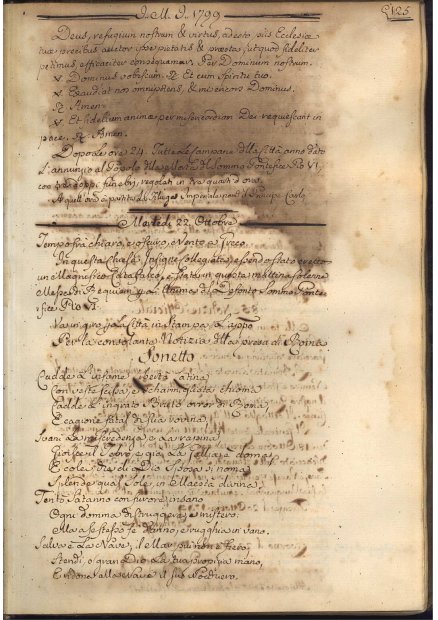 J. M. J. 1799
125
Deus, refugium nostrum & virtus, adesto piis Ecclesiæ
tuæ precibus auctor ipse pietatis & præsta, ut quod fideliter
petimus efficaciter consequamur. Per Dominum nostrum.
℣ Dominus vobiscum. ℟ Et cum Spiritu tuo.
℣ Exaudiat nos omnipotens, & misericors Dominus.
℟ Amen.
℣ Et fidelium animæ per misericordiam Dei requiescant in
pace. ℟ Amen.
Dopo le ore 24. Tutte le Campane della Città anno dato
l'annunzio al Popolo della morte del Sommo Pontefice Pio VI,
con funebri, regolati in tre quarti d'ora.
A quell'ora è partito Imperiale il Principe Carlo
Martedì 22. Ottobre
Tempo fra chiaro, e oscuro, Vento e Greco.
In questa Chiesa Insigne Collegiata essendo stato eretto
un Magnifico Catafalco, è stata in questa mattina solenne
Messa di Requiem per l'Anima del Defonto Sommo Ponte-
fice Pio VI.
Va in giro per la Città in Stampa
Per la consolante Notizia della presa di Roma
Sonetto
Cadde l'infame latina
Con veste scissa, e scarmigliata chioma
Cadde l'ingrato Senato orror di Roma
E cagione fatal di sua rovina.
la miscredenza e la rapina
Gioisce il Tebro, e già la folla è doma
Eccolo che di Dio Sposa si noma
Splende qual Sole, in Maestà divina
Tentò Satanno con furore insano
Ogni domma distruggere, e mistero.
Ma a se stesso fè danno, e rugghia in vano.
Salva è la Nave,
Stendi, o gran Dio la tua propizia mano,
E ridona alla Nave il suo Nocchiero.